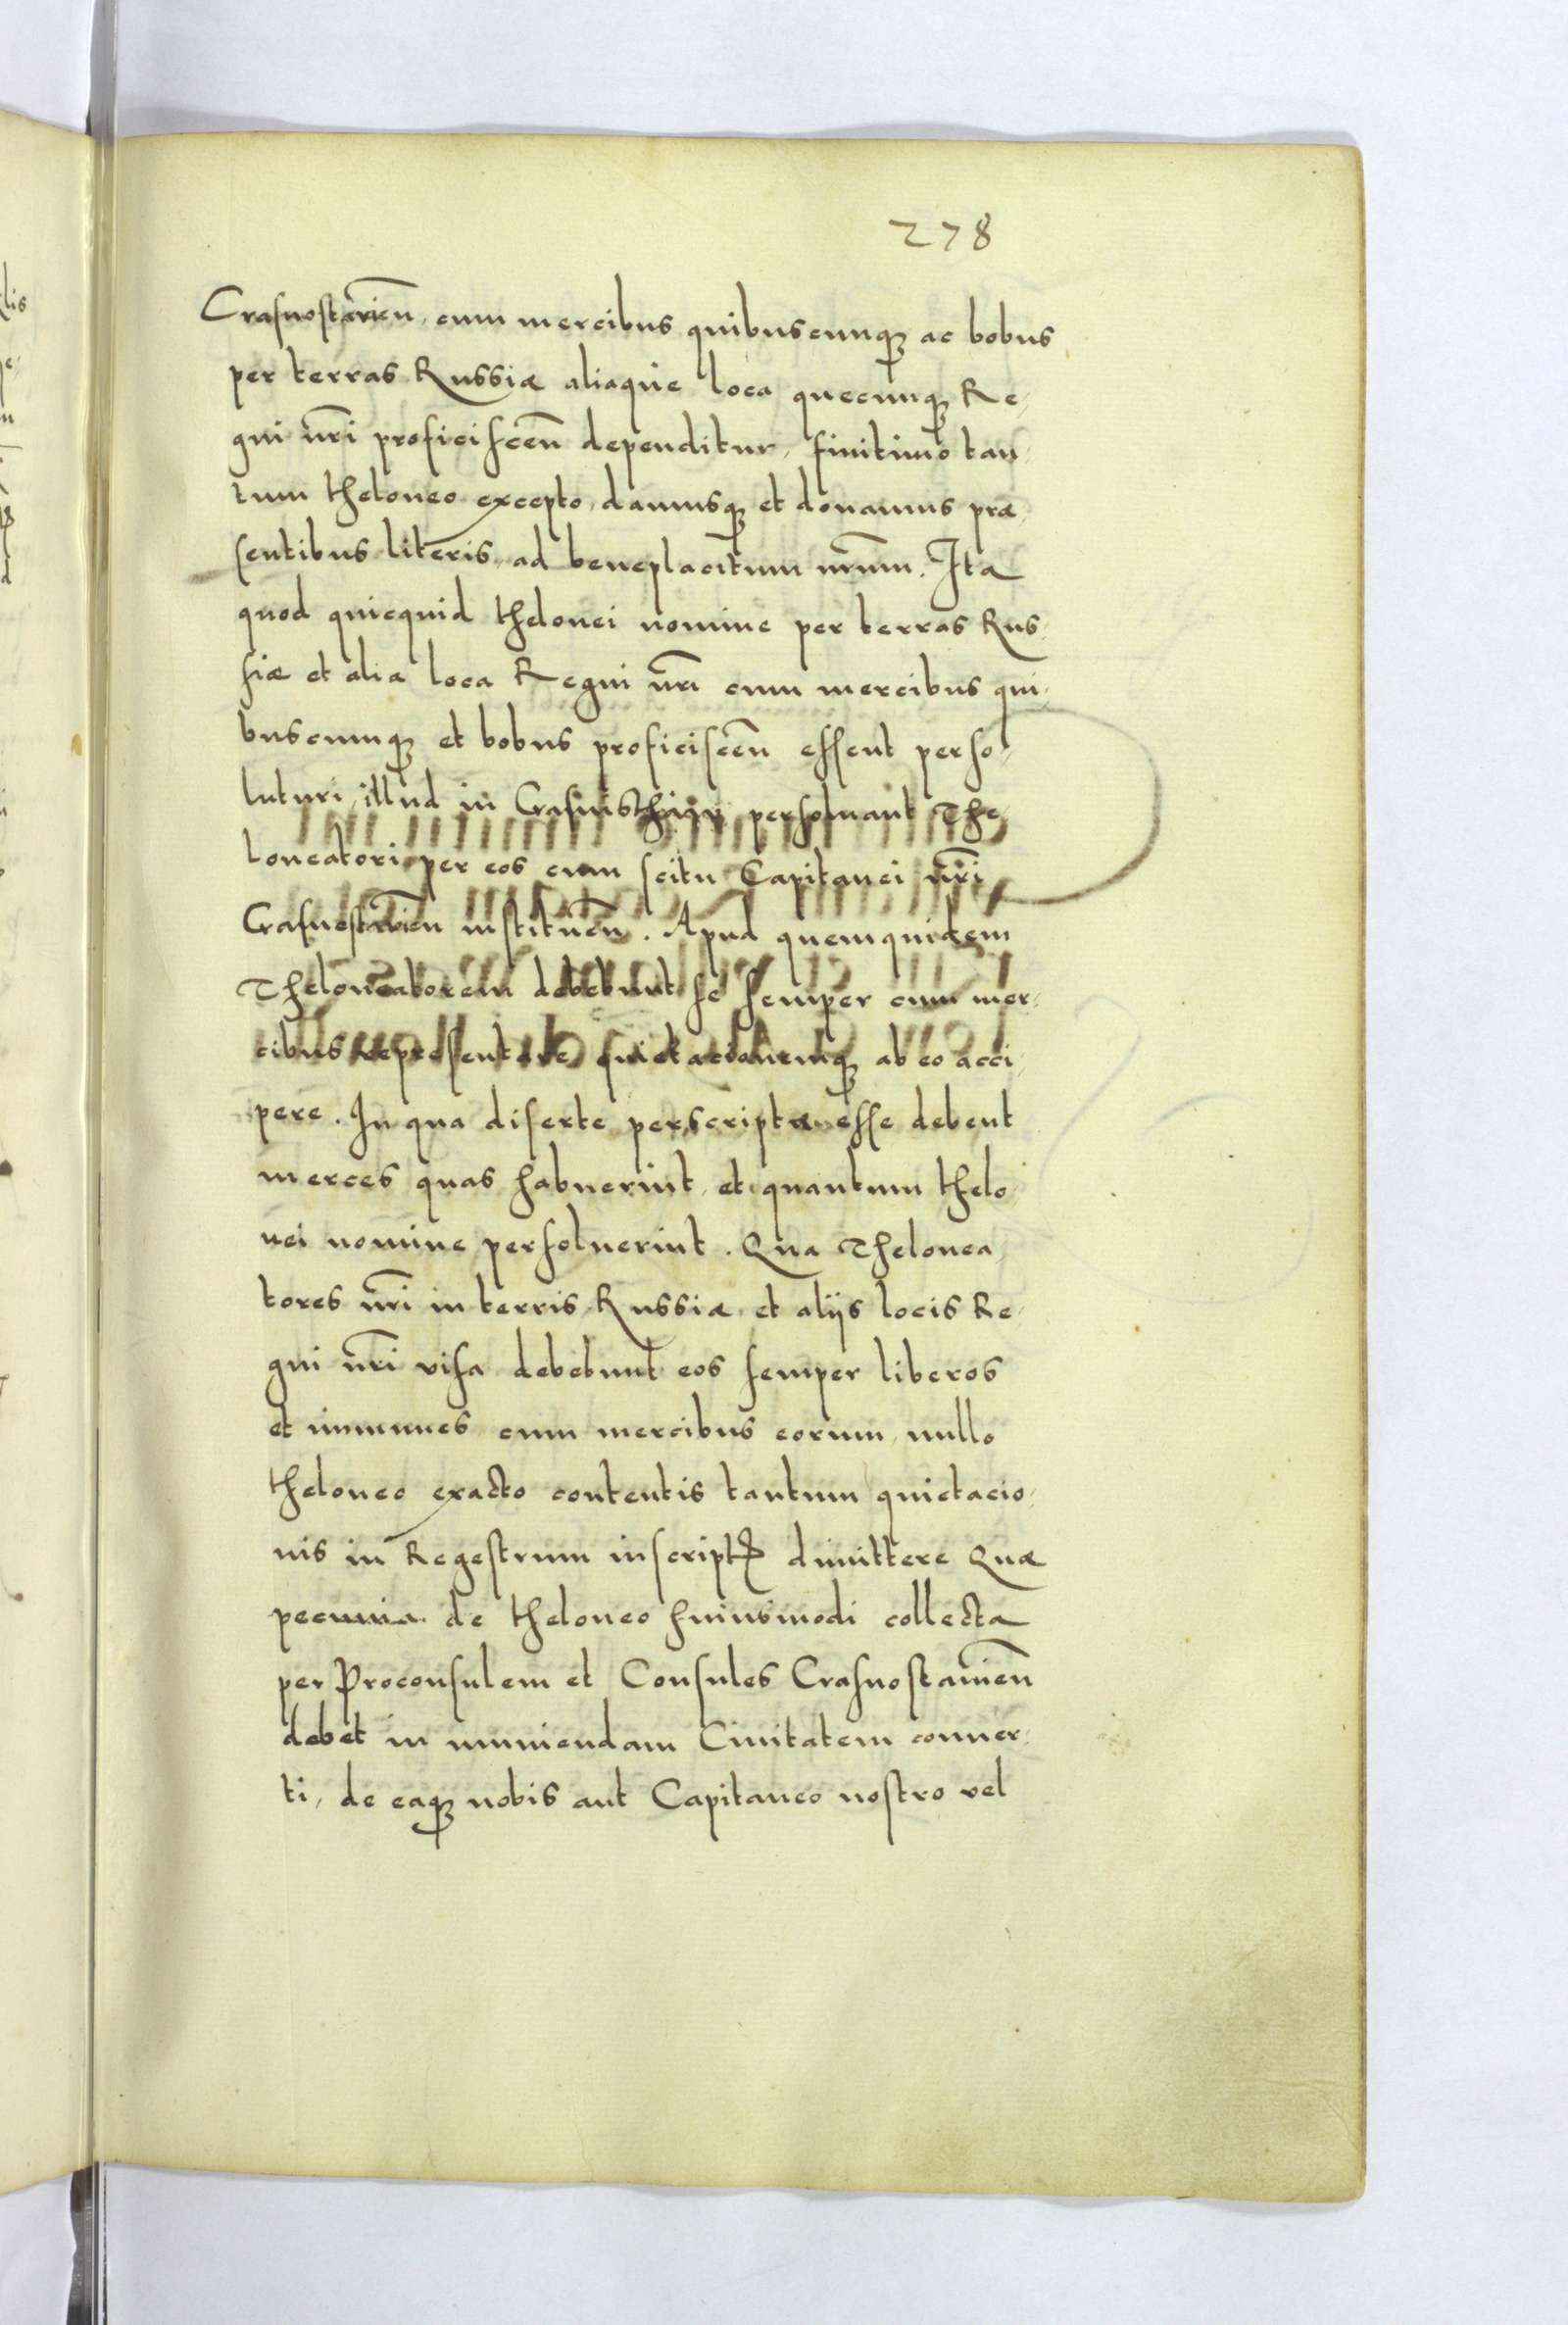 278
Crasnostauien̄, cum mercibus quibuscunq; ac bobus
per terras Russiæ aliaque loca quecunq; Re-
gni nr̄i proficiscen̄ dependitur, finitimo tan-
tum theloneo excepto, damusq; et donamus præ-
sentibus literis, ad beneplacitum nr̄um. Ita
quod quicquid thelonei nomine per terras Rus-
siæ et alia loca Regni nr̄i cum mercibus qui-
buscunq; et bobus proficiscen̄ essent perso-
luturi, illud in persoluant The-
loneatori per eos cum scitu Capitanei nr̄i
Crasnostauien̄ instituen̄. Apud quemquidem
Theloneatorem debebunt se semper cum mer-
cibus repræsentare quietacionemq; ab eo acci-
pere. In qua diserte perscriptæ esse debent
merces quas habuerint, et quantum thelo-
nei nomine persoluerint. Qua Thelonea-
tores nr̄i in terris Russiæ et alijs locis Re-
gni nr̄i visa debebunt eos semper liberos
et immunes cum mercibus eorum, nullo
theloneo exacto contentis tantum quietacio-
nis in Regestrum inscriptis dimittere Quæ
pecunia de theloneo huiusmodi collecta
per Proconsulem et Consules Crasnostauien̄
debet in muniendam Ciuitatem conuer-
ti, de eaq; nobis aut Capitaneo nostro vel